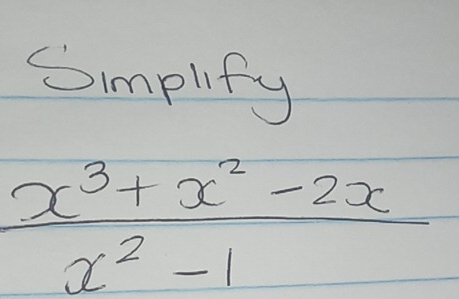 Simplify
x³ + x² - 2x
x² - 1